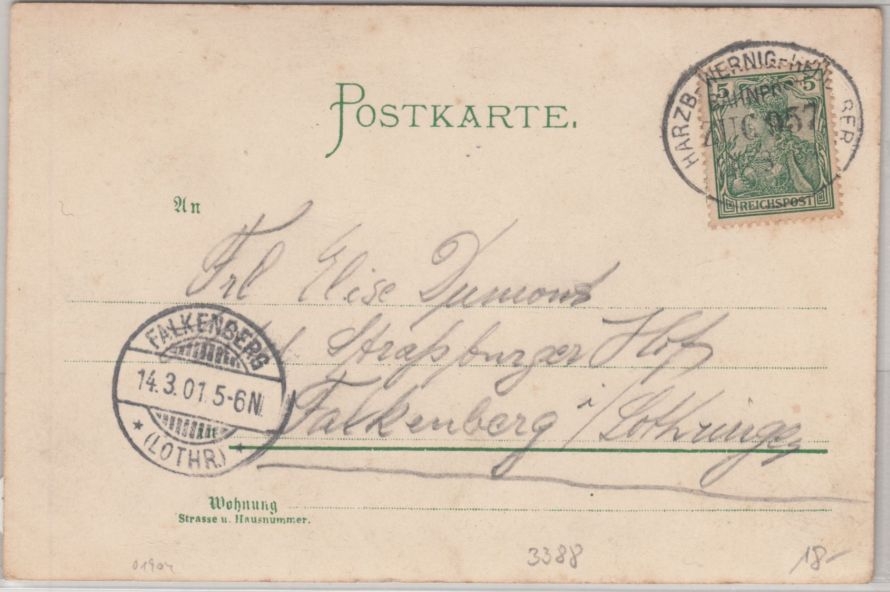 POSTKARTE.
HARZB.-WERNIG
BAHNPOST
ZUG 957
5 5
REICHSPOST
An
Frl Elise Dumont
Straßburger Hof
Falkenberg i/Lothringen
FALKENBERG
14.3.01.5-6N.
* (LOTHR.) *
Wohnung
Strasse u. Hausnummer.
3388
18-